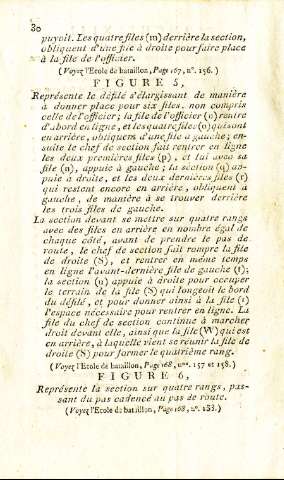 30
puyoit. Les quatre files (m) derrière la section,
obliquent d'une file à droite pour faire place
à la file de l'officier.
(Voyez l'Ecole de bataillon, Page 167, n°. 156.)
FIGURE 5,
Représente le défilé s'élargissant de manière
à donner place pour six files, non compris
celle de l'officier; la file de l'officier (o) rentre
d'abord en ligne, et les quatre files (o) qui sont
en arrière, obliquent d'une file à gauche; en-
suite le chef de section fait rentrer en ligne
les deux premières files (p), et lui avec sa
file (n), appuie à gauche; la section (q) ap-
puie à droite, et les deux dernières files (r)
qui restent encore en arrière, obliquent à
gauche, de manière à se trouver derrière
les trois files de gauche.
La section devant se mettre sur quatre rangs
avec des files en arrière en nombre égal de
chaque côté, avant de prendre le pas de
route, le chef de section fait rompre la file
de droite (S), et rentrer en même temps
en ligne l'avant-dernière file de gauche (t);
la section (u) appuie à droite pour occuper
le terrain de la file (S) qui longeoit le bord
du défilé, et pour donner ainsi à la file (t)
l'espace nécessaire pour rentrer en ligne. La
file du chef de section continue à marcher
droit devant elle, ainsi que la file (W) qui est
en arrière, à laquelle vient se réunir la file de
droite (S) pour former le quatrième rang.
(Voyez l'Ecole de bataillon, Page 168, nos. 157 et 158.)
FIGURE 6,
Représente la section sur quatre rangs, pas-
sant du pas cadencé au pas de route.
(Voyez l'Ecole de bataillon, Page 168, n°. 158.)